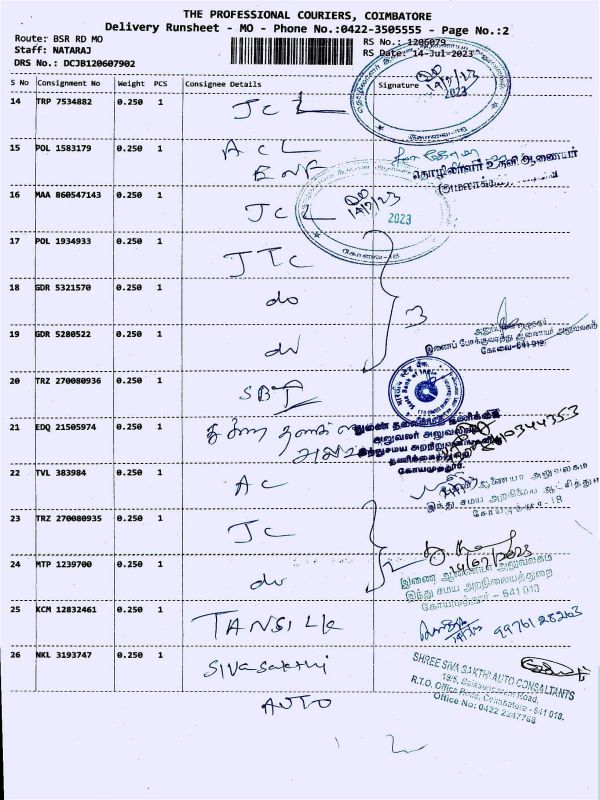 THE PROFESSIONAL COURIERS, COIMBATORE
Delivery Runsheet - MO - Phone No.:0422-3505555 - Page No.:2
Route: BSR RD MO
RS No.: 1206079
Staff: NATARAJ
RS Date: 14-Jul-2023
DRS No.: DCJB120607902
S No Consignment No Weight PCS Consignee Details Signature
14 TRP 7534882 0.250 1 JCL
14/7/23
2023
கோவை-18
15 POL 1583179 0.250 1 ACL
ENF
தொழிலாளர் உதவி ஆணையர்
16 MAA 860547143 0.250 1 JCL
14/7/23
2023
கோவை-18
17 POL 1934933 0.250 1 JTC
18 GDR 5321570 0.250 1 do
3
19 GDR 5280522 0.250 1 do
இணைப் போக்குவரத்து ஆணையர் அலுவலகம்
கோவை-641 018.
20 TRZ 270080936 0.250 1 SBI
State Bank of India
21 EDQ 21505974 0.250 1
அலுவலர் அலுவலகம்
இந்துசமய அறநிலையத்துறை
கோயமுத்தூர்.
22 TVL 383984 0.250 1 AC
உதவி ஆணையர் அலுவலகம்
இந்து சமய அறநிலைய ஆட்சித்துறை
கோயமுத்தூர்-18
23 TRZ 270080935 0.250 1 JC
24 MTP 1239700 0.250 1 do
2
14/07/2023
இணை ஆணையர் அலுவலகம்
இந்து சமய அறநிலையத்துறை
கோயமுத்தூர் - 641 018
25 KCM 12832461 0.250 1 TANSILK
9976128263
26 NKL 3193747 0.250 1 Sivasakthi
AUTO
SHREE SIVA SAKTHI AUTO CONSULTANTS
R.T.O. Office Road, Coimbatore - 641 018.
Office No: 0422 2247768